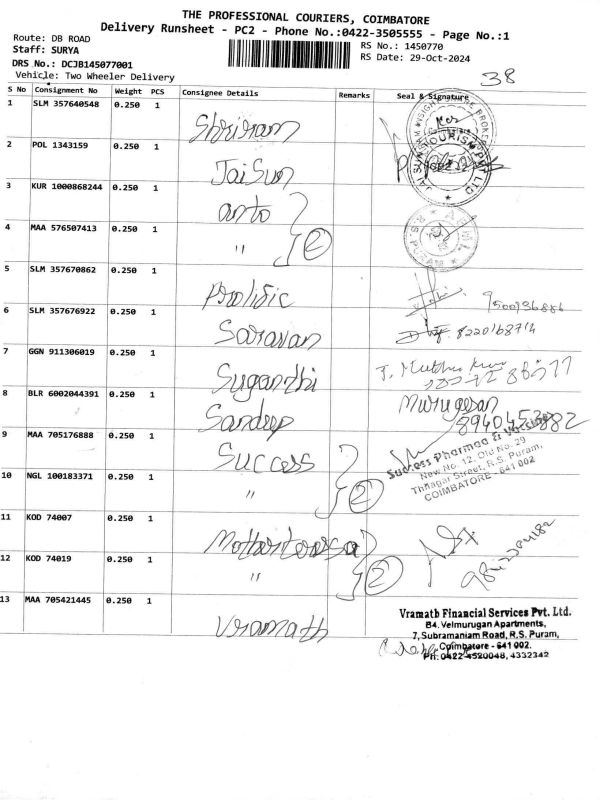 THE PROFESSIONAL COURIERS, COIMBATORE
Delivery Runsheet - PC2 - Phone No.:0422-3505555 - Page No.:1
Route: DB ROAD
Staff: SURYA
RS No.: 1450770
DRS No.: DCJB145077001
RS Date: 29-Oct-2024
Vehicle: Two Wheeler Delivery
38
S No Consignment No Weight PCS Consignee Details Remarks Seal & Signature
1 SLM 357640548 0.250 1 Shriram
2 POL 1343159 0.250 1 Jai Sun
JAI SUN TOURISM PVT LTD
3 KUR 1000868244 0.250 1 anto
4 MAA 576507413 0.250 1 " 2
R.S. PURAM
5 SLM 357670862 0.250 1 Prolific
6 SLM 357676922 0.250 1 Saravan 8220168714
7 GGN 911306019 0.250 1 Suganthi
8 BLR 6002044391 0.250 1 Sandeep Murugesan
9 MAA 705176888 0.250 1 Success
Success Pharmaa &
New No. 12, Old No. 29
Thilagar Street, R.S. Puram,
COIMBATORE - 641 002
10 NGL 100183371 0.250 1 " 2
11 KOD 74007 0.250 1
12 KOD 74019 0.250 1 " 2
13 MAA 705421445 0.250 1 Vramath
Vramath Financial Services Pvt. Ltd.
B4. Velmurugan Apartments,
7, Subramaniam Road, R.S. Puram,
Coimbatore - 641 002.
PH: 0422-4520048, 4332342